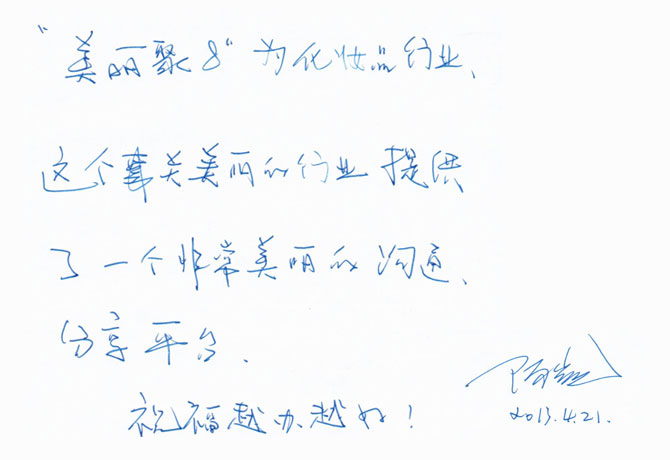 “美丽聚8”为化妆品行业、
这个事关美丽的行业提供
了一个非常美丽的沟通、
分享平台.
祝福越办越好!
2013.4.21.